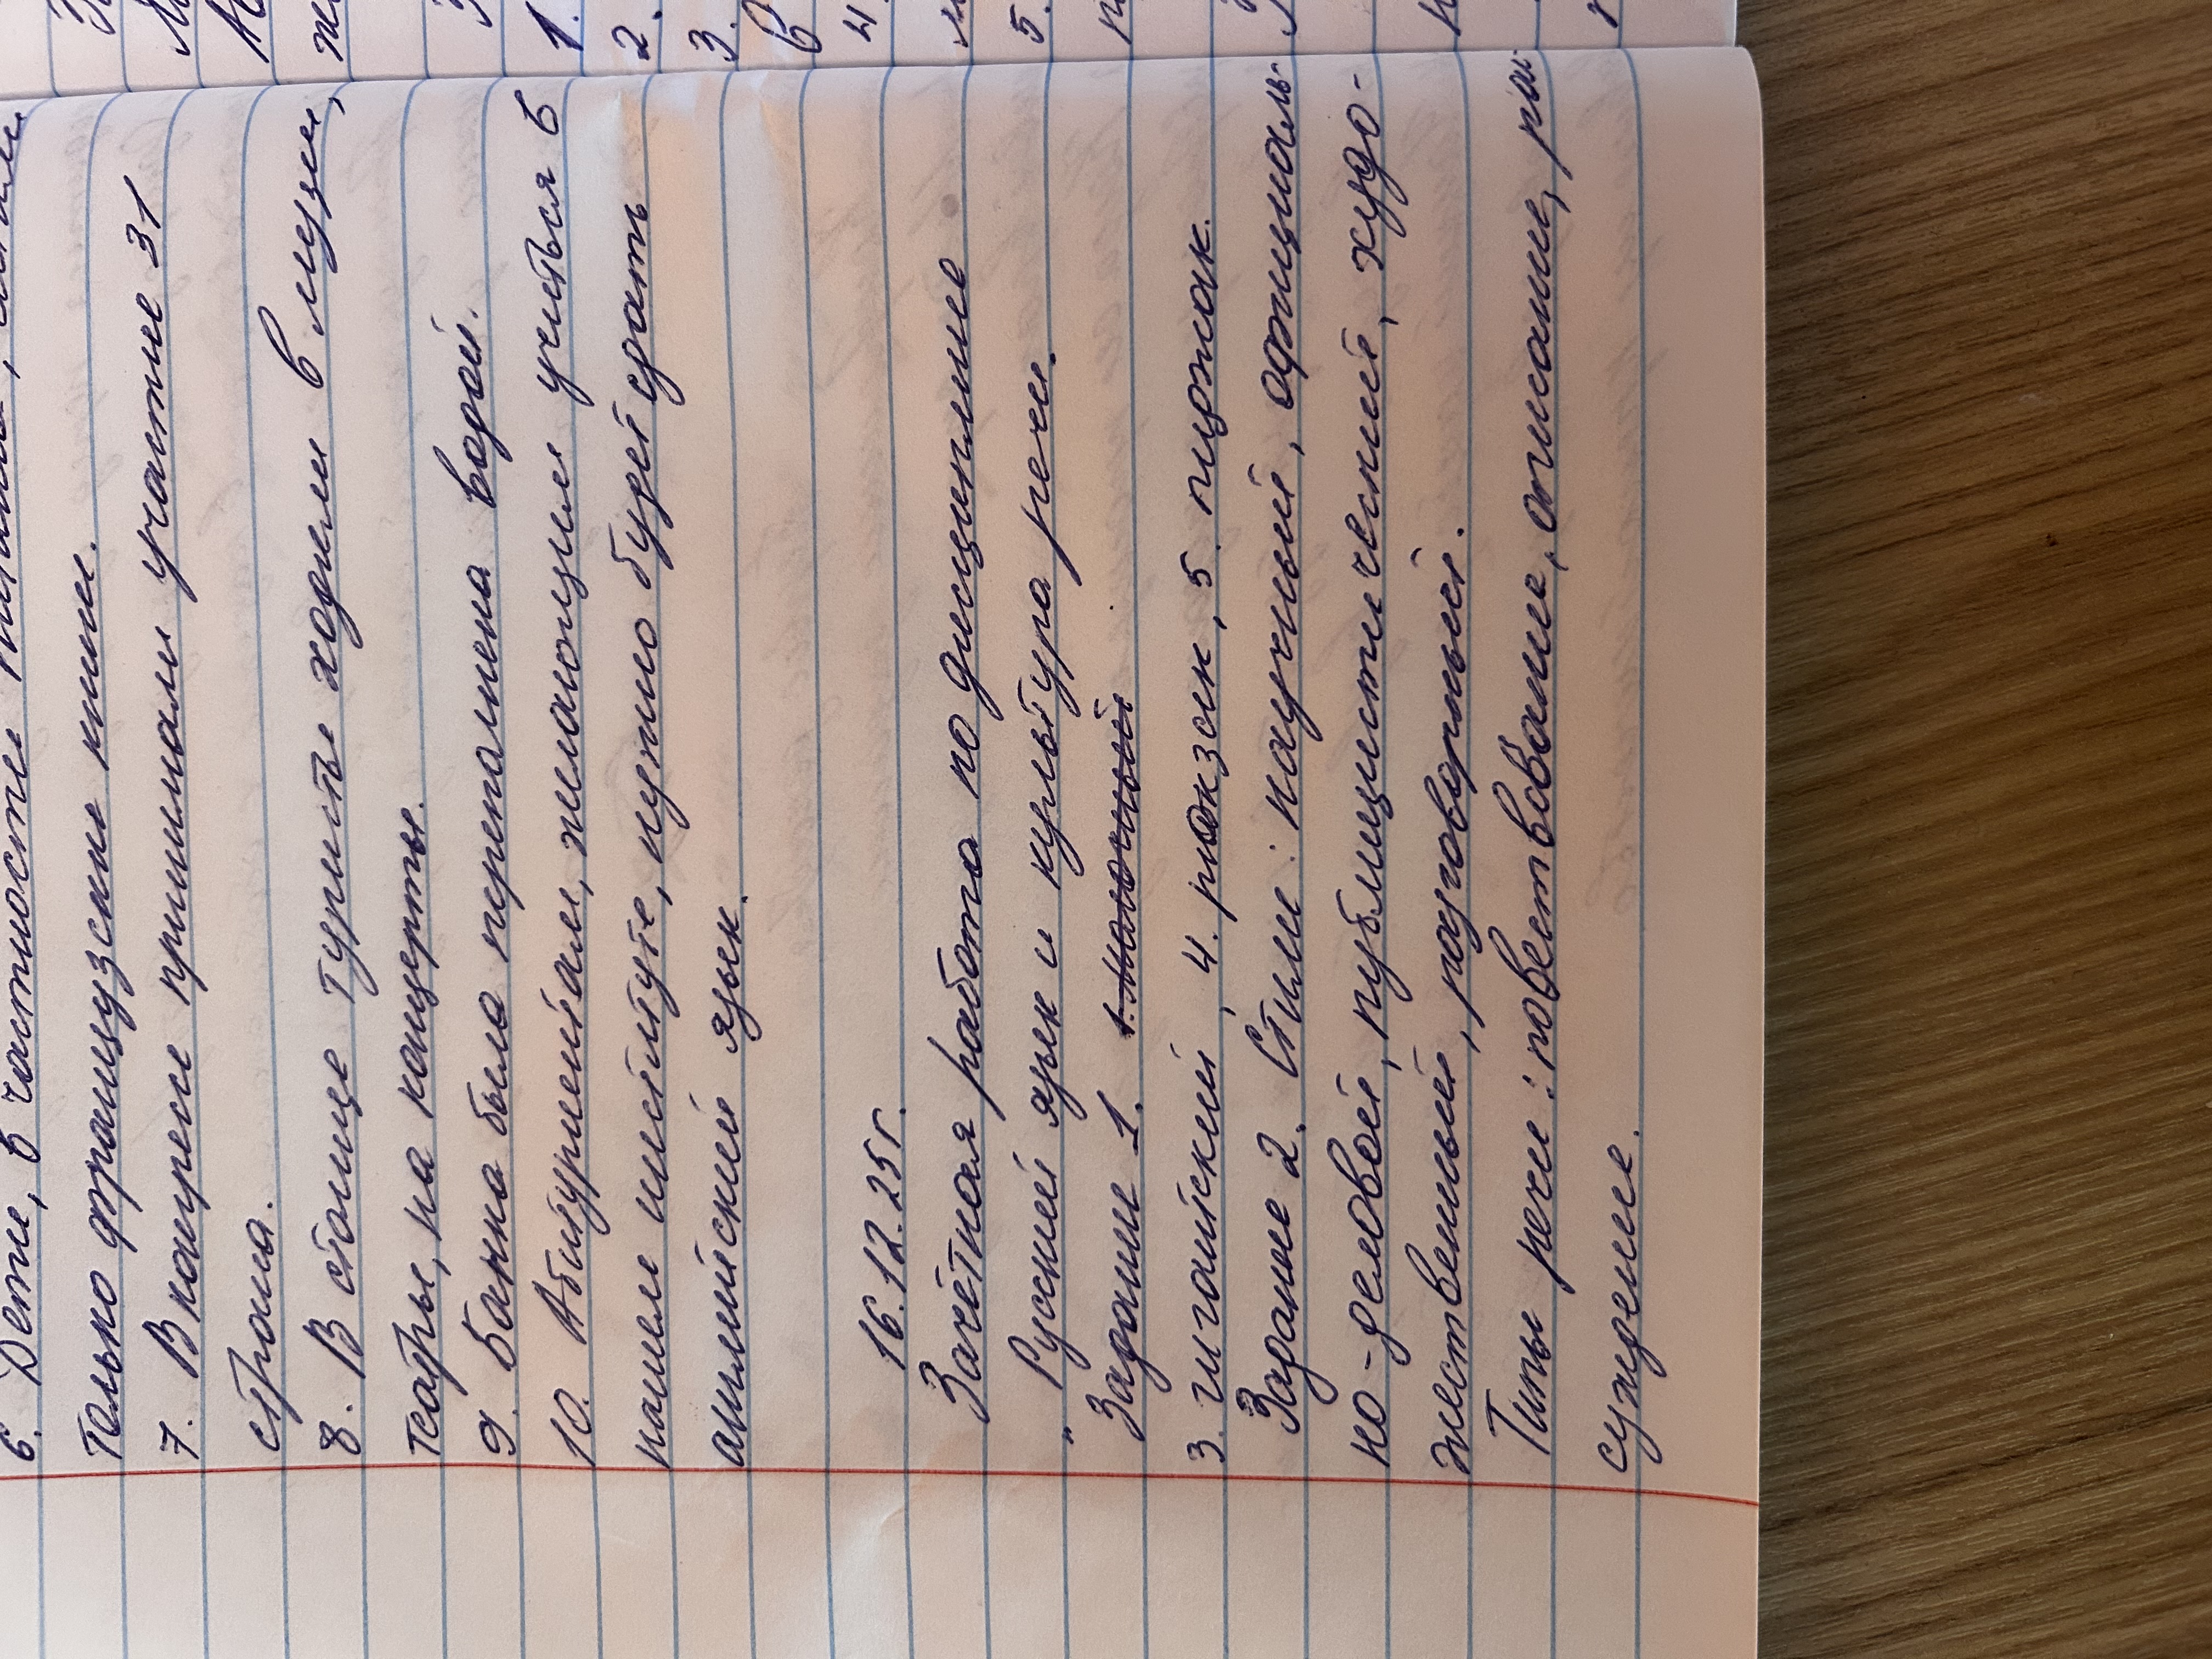 6. Дети, в частности
только французские книги.
7. В конкурсе принимали участие 31
страна.
8. В столице туристы ходили в музеи,
театры, на концерты.
9. Банка была переполнена водой.
10. Абитуриентам, желающим учиться в
нашем институте, нужно будет сдать
английский язык.
16.12.25г.
Зачётная работа по дисциплине
"Русский язык и культура речи.
Задание 1.
3. гигантский, 4. рюкзак, 5. пиджак.
Задание 2. Стили: научный, официаль-
но-деловой, публицистический, худо-
жественный, разговорный.
Типы речи: повествование, описание, рас-
суждение.
1.
2.
3.
4.
5.